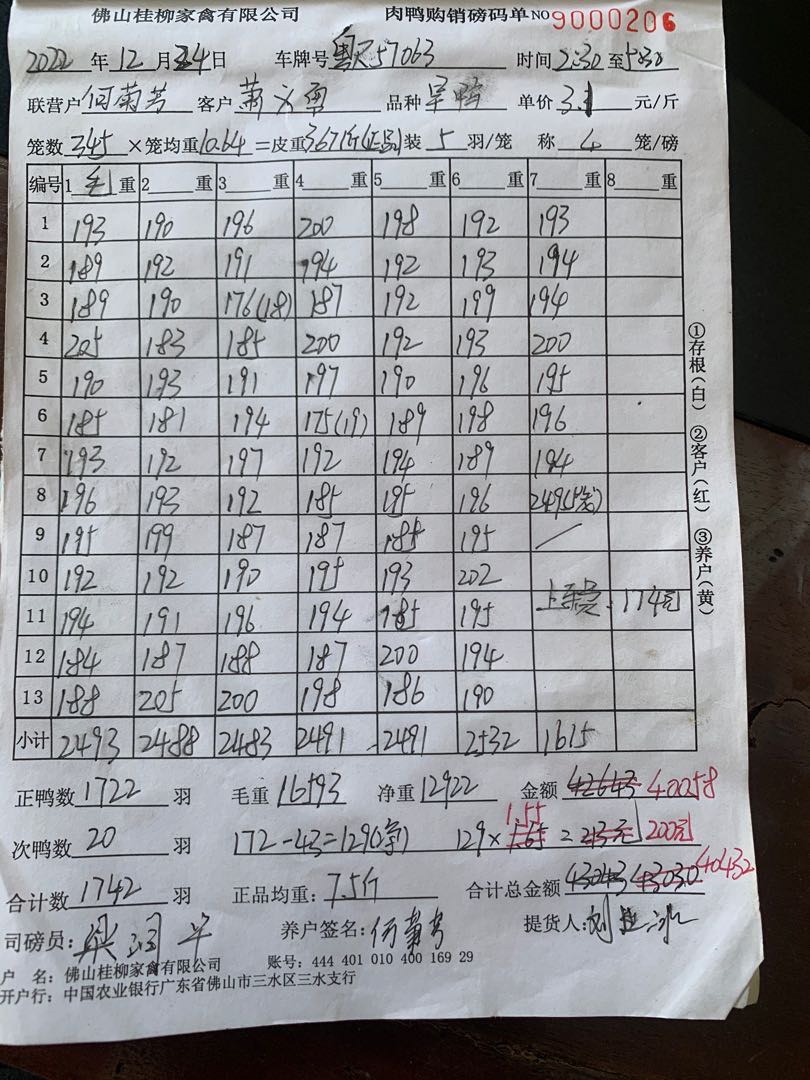 佛山桂柳家禽有限公司 肉鸭购销磅码单 NO 9000206
2022 年 12 月 24 日 车牌号 57063 时间 2:30 至 5:30
联营户 何菊芳 客户 萧 品种 单价 3.1 元/斤
笼数 345 ×笼均重 10.64 =皮重 3671斤(正品) 装 5 羽/笼 称 4 笼/磅
编号 1 毛 重 2 重 3 重 4 重 5 重 6 重 7 重 8 重
1 193 190 196 200 198 192 193
2 189 192 191 194 192 193 194
3 189 190 176(18) 187 192 199 194
4 205 183 185 200 192 193 200
5 190 193 191 197 190 196 195
6 185 181 194 175(19) 189 198 196
7 193 192 197 192 194 189 194
8 196 193 192 185 195 196 249(5笼)
9 195 199 187 187 185 195 /
10 192 192 190 195 193 202
11 194 191 196 194 185 195 上车费:174元
12 184 187 188 187 200 194
13 188 205 200 198 186 190
小计 2493 2488 2483 2491 2491 2532 1615
正鸭数 1722 羽 毛重 16593 净重 12922 金额 42643 40058
次鸭数 20 羽 172-43=129(字) 129× 1.55 = 213元 200元
合计数 1742 羽 正品均重: 7.5斤 合计总金额 43043 43030 40432
司磅员: 梁润 养户签名: 何菊芳 提货人: 刘
户 名: 佛山桂柳家禽有限公司 账号: 444 401 010 400 169 29
开户行: 中国农业银行广东省佛山市三水区三水支行
①存根(白) ②客户(红) ③养户(黄)